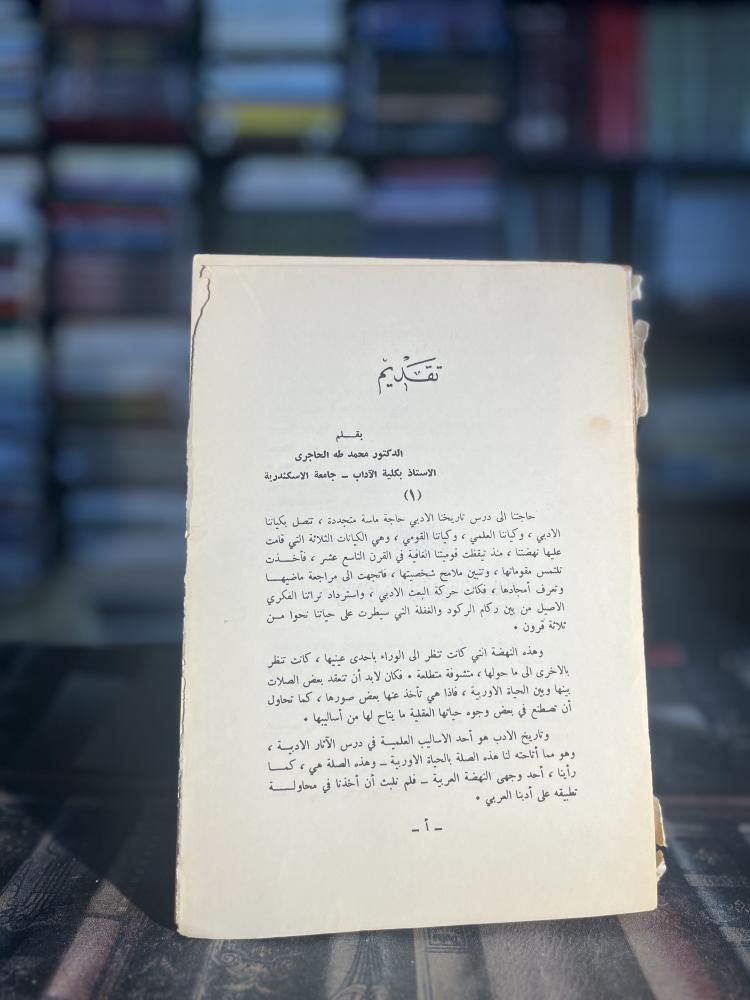 تقديم
بقلم
الدكتور محمد طه الحاجرى
الاستاذ بكلية الآداب – جامعة الاسكندرية
(١)
حاجتنا الى درس تاريخنا الادبي حاجة ماسة متجددة ، تتصل بكياننا
الادبي ، وكياننا العلمي ، وكياننا القومي ، وهي الكيانات الثلاثة التي قامت
عليها نهضتنا ، منذ تيقظت قوميتنا الغافية في القرن التاسع عشر ، فأخذت
تلتمس مقوماتها ، وتتبين ملامح شخصيتها ، فاتجهت الى مراجعة ماضيها
وتعرف أمجادها ، فكانت حركة البعث الادبي ، واسترداد تراثنا الفكري
الاصيل من بين ركام الركود والغفلة التي سيطرت على حياتنا نحوا من
ثلاثة قرون •
وهذه النهضة التي كانت تنظر الى الوراء باحدى عينيها ، كانت تنظر
بالاخرى الى ما حولها ، متشوفة متطلعة • فكان لابد أن تنعقد بعض الصلات
بينها وبين الحياة الاوربية ، فاذا هي تأخذ عنها بعض صورها ، كما تحاول
أن تصطنع في بعض وجوه حياتها العقلية ما يتاح لها من أساليبها •
وتاريخ الادب هو أحد الاساليب العلمية في درس الآثار الادبية ،
وهو مما أتاحته لنا هذه الصلة بالحياة الاوربية – وهذه الصلة هي ، كما
رأينا ، أحد وجهى النهضة العربية – فلم نلبث أن أخذنا في محاولة
تطبيقه على أدبنا العربي •
– أ –